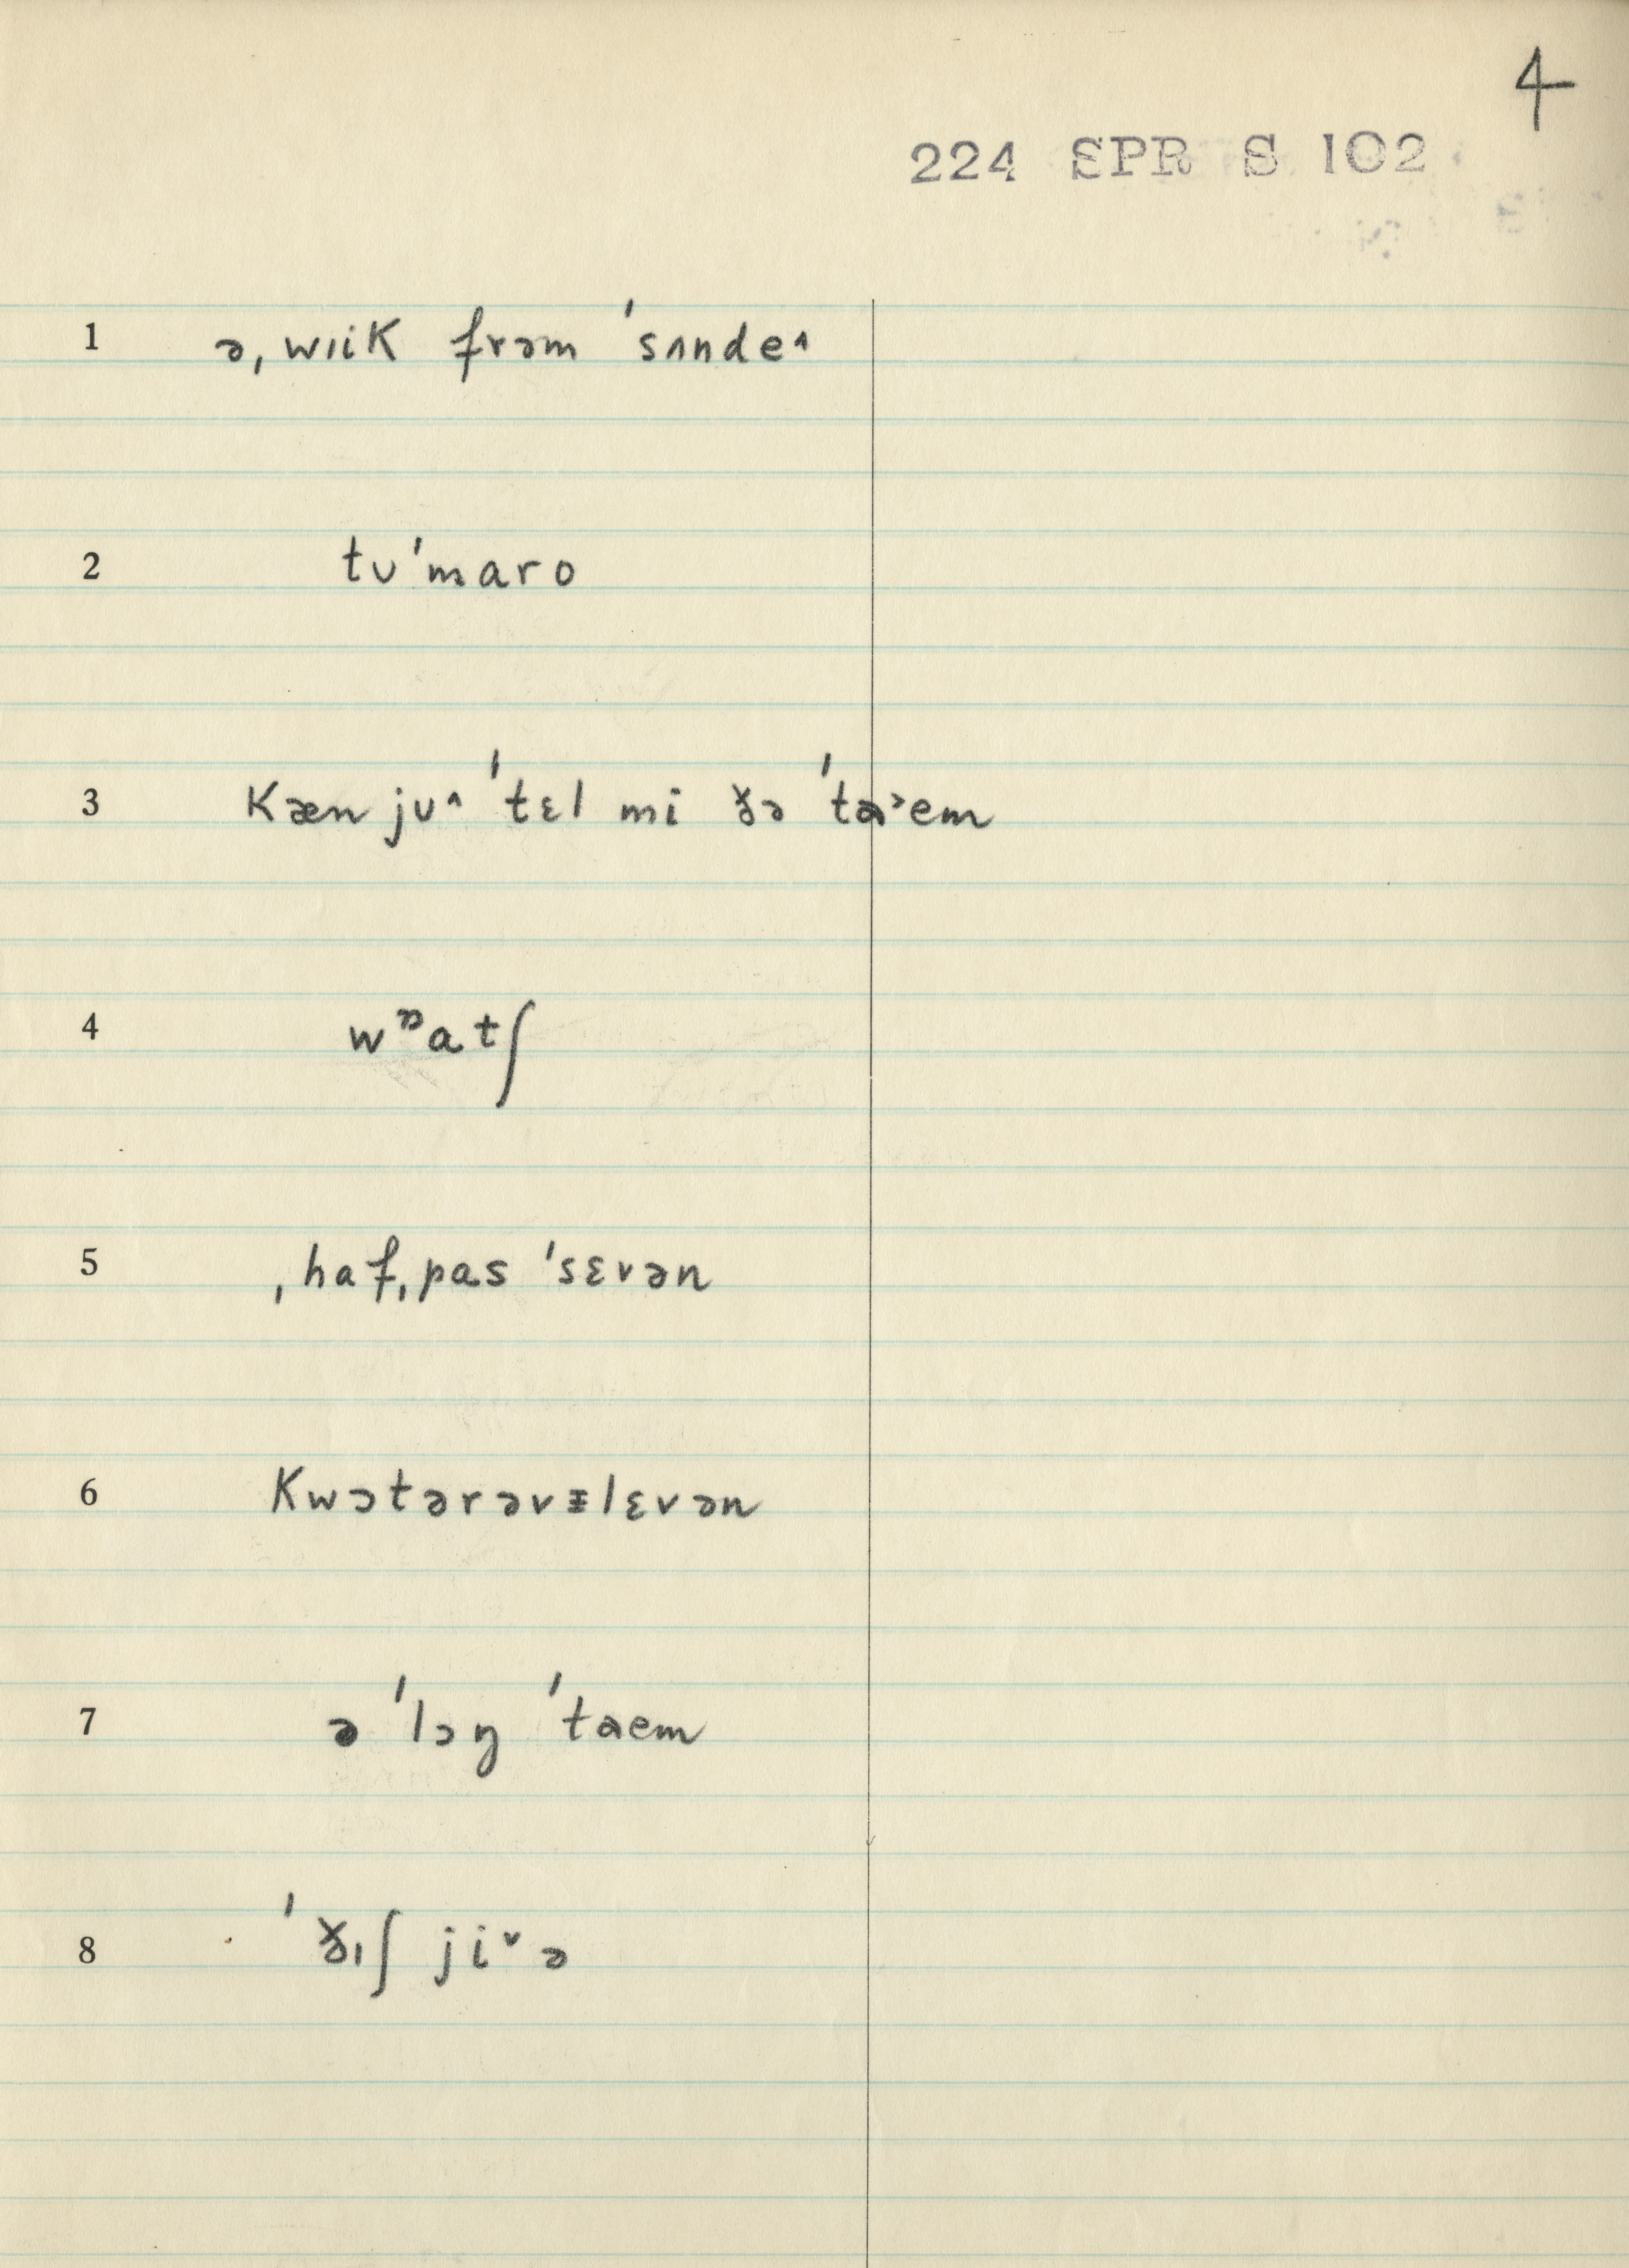 4
224 SPR S 102
1 əˌwıik frəm ˈsʌnde˄
2 tʊˈmaro
3 kæn jʊ˄ ˈtɛl mi ðə ˈta˃em
4 wᶛatʃ
5 ˌhafˌpas ˈsɛvən
6 kwɔtərəvᵻlɛvən
7 ə ˈlɔŋ ˈtaem
8 ˈðıʃ ji˅ə